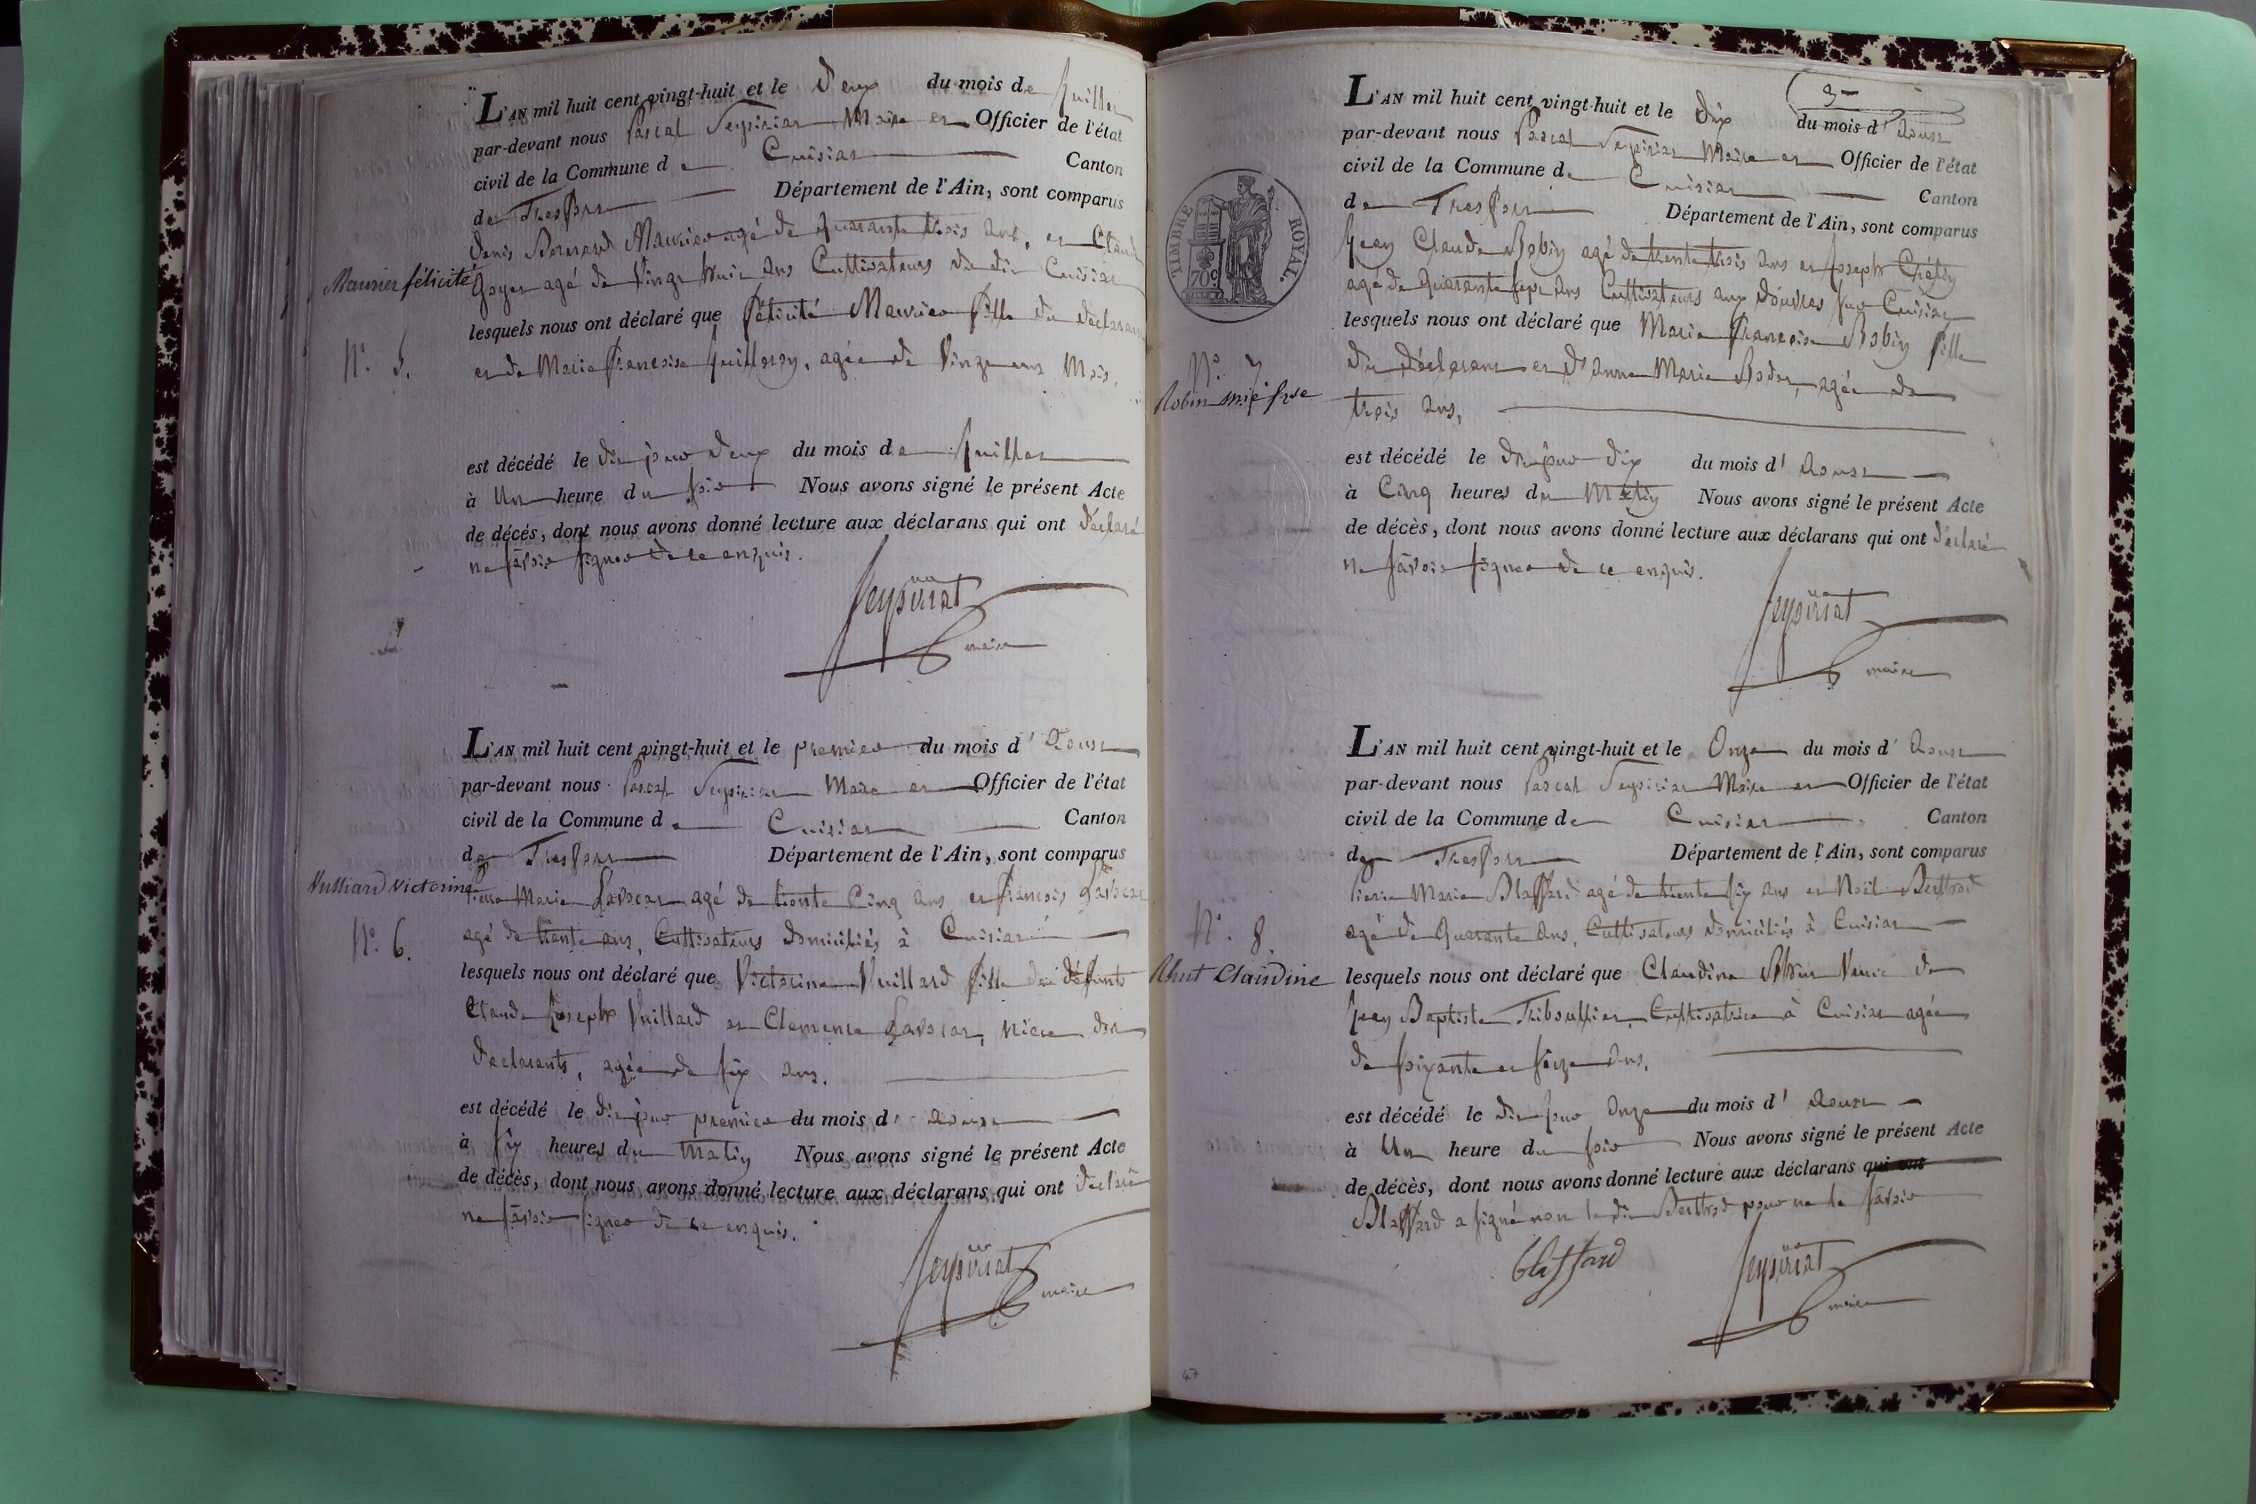 L'AN mil huit cent vingt-huit et le Deux du mois de Juillet
par-devant nous Pascal Seyssiriat Maire et Officier de l'état
civil de la Commune de Cuisiat Canton
de Treffort Département de l'Ain, sont comparus
Denis Bernard Maurier agé de quarante trois ans, et Claude
Goyet agé de vingt huit ans Cultivateurs du dit Cuisiat
Maurier félicité
lesquels nous ont déclaré que félicité Maurier fille du déclarant
N.° 5.
et de Marie françoise agée de Vingt Mois.
est décédé le dit jour deux du mois de Juillet
à Une heure du soir Nous avons signé le présent Acte
de décès, dont nous avons donné lecture aux déclarans qui ont déclaré
ne savoir signer de ce enquis.
Seyssiriat
maire
L'AN mil huit cent vingt-huit et le premier du mois d'Aoust
par-devant nous Pascal Seyssiriat Maire et Officier de l'état
civil de la Commune de Cuisiat Canton
de Treffort Département de l'Ain, sont comparus
Vulliard victorine
Pierre Marie Lavocat agé de trente Cinq ans et francois Lavocat
agé de trente ans, Cultivateurs domiciliés à Cuisiat
N.° 6.
lesquels nous ont déclaré que Victorine Vuillard fille des défunts
Claude Joseph Vuillard et Clemence Lavocat, niece des
déclarants, agée de six ans.
est décédé le dit jour premier du mois d'Aoust
à six heures du Matin Nous avons signé le présent Acte
de décès, dont nous avons donné lecture aux déclarans qui ont déclaré
ne savoir signer de ce enquis.
Seyssiriat
maire
3
L'AN mil huit cent vingt-huit et le Dix du mois d'Aoust
par-devant nous Pascal Seyssiriat Maire et Officier de l'état
civil de la Commune de Cuisiat Canton
de Treffort Département de l'Ain, sont comparus
TIMBRE ROYAL.
70 c
Jean Claude Robin agé de trente trois ans et Joseph
agé de Quarante sept ans Cultivateurs aux sur Cuisiat
lesquels nous ont déclaré que Marie françoise Robin fille
N.° 7
du déclarant et d'Anne Marie Bodet, agée de
Robin mie fse
trois ans,
est décédé le dit jour dix du mois d'Aoust
à Cinq heures du Matin Nous avons signé le présent Acte
de décès, dont nous avons donné lecture aux déclarans qui ont déclaré
ne savoir signer de ce enquis.
Seyssiriat
maire
L'AN mil huit cent vingt-huit et le Onze du mois d'Aoust
par-devant nous Pascal Seyssiriat Maire et Officier de l'état
civil de la Commune de Cuisiat Canton
de Treffort Département de l'Ain, sont comparus
Pierre Marie Blaffard agé de trente six ans et Noël Berthod
agé de Quarante ans, Cultivateurs domiciliés à Cuisiat
N.° 8.
lesquels nous ont déclaré que Claudine Veuve de
Claudine
Jean Baptiste Tiboullier, Cultivatrice à Cuisiat agée
de soixante et seize ans.
est décédé le dit jour Onze du mois d'Aoust
à Une heure du soir Nous avons signé le présent Acte
de décès, dont nous avons donné lecture aux déclarans qui ont
Blaffard a signé non le dit Berthod pour ne le savoir
blaffard
Seyssiriat
maire
47